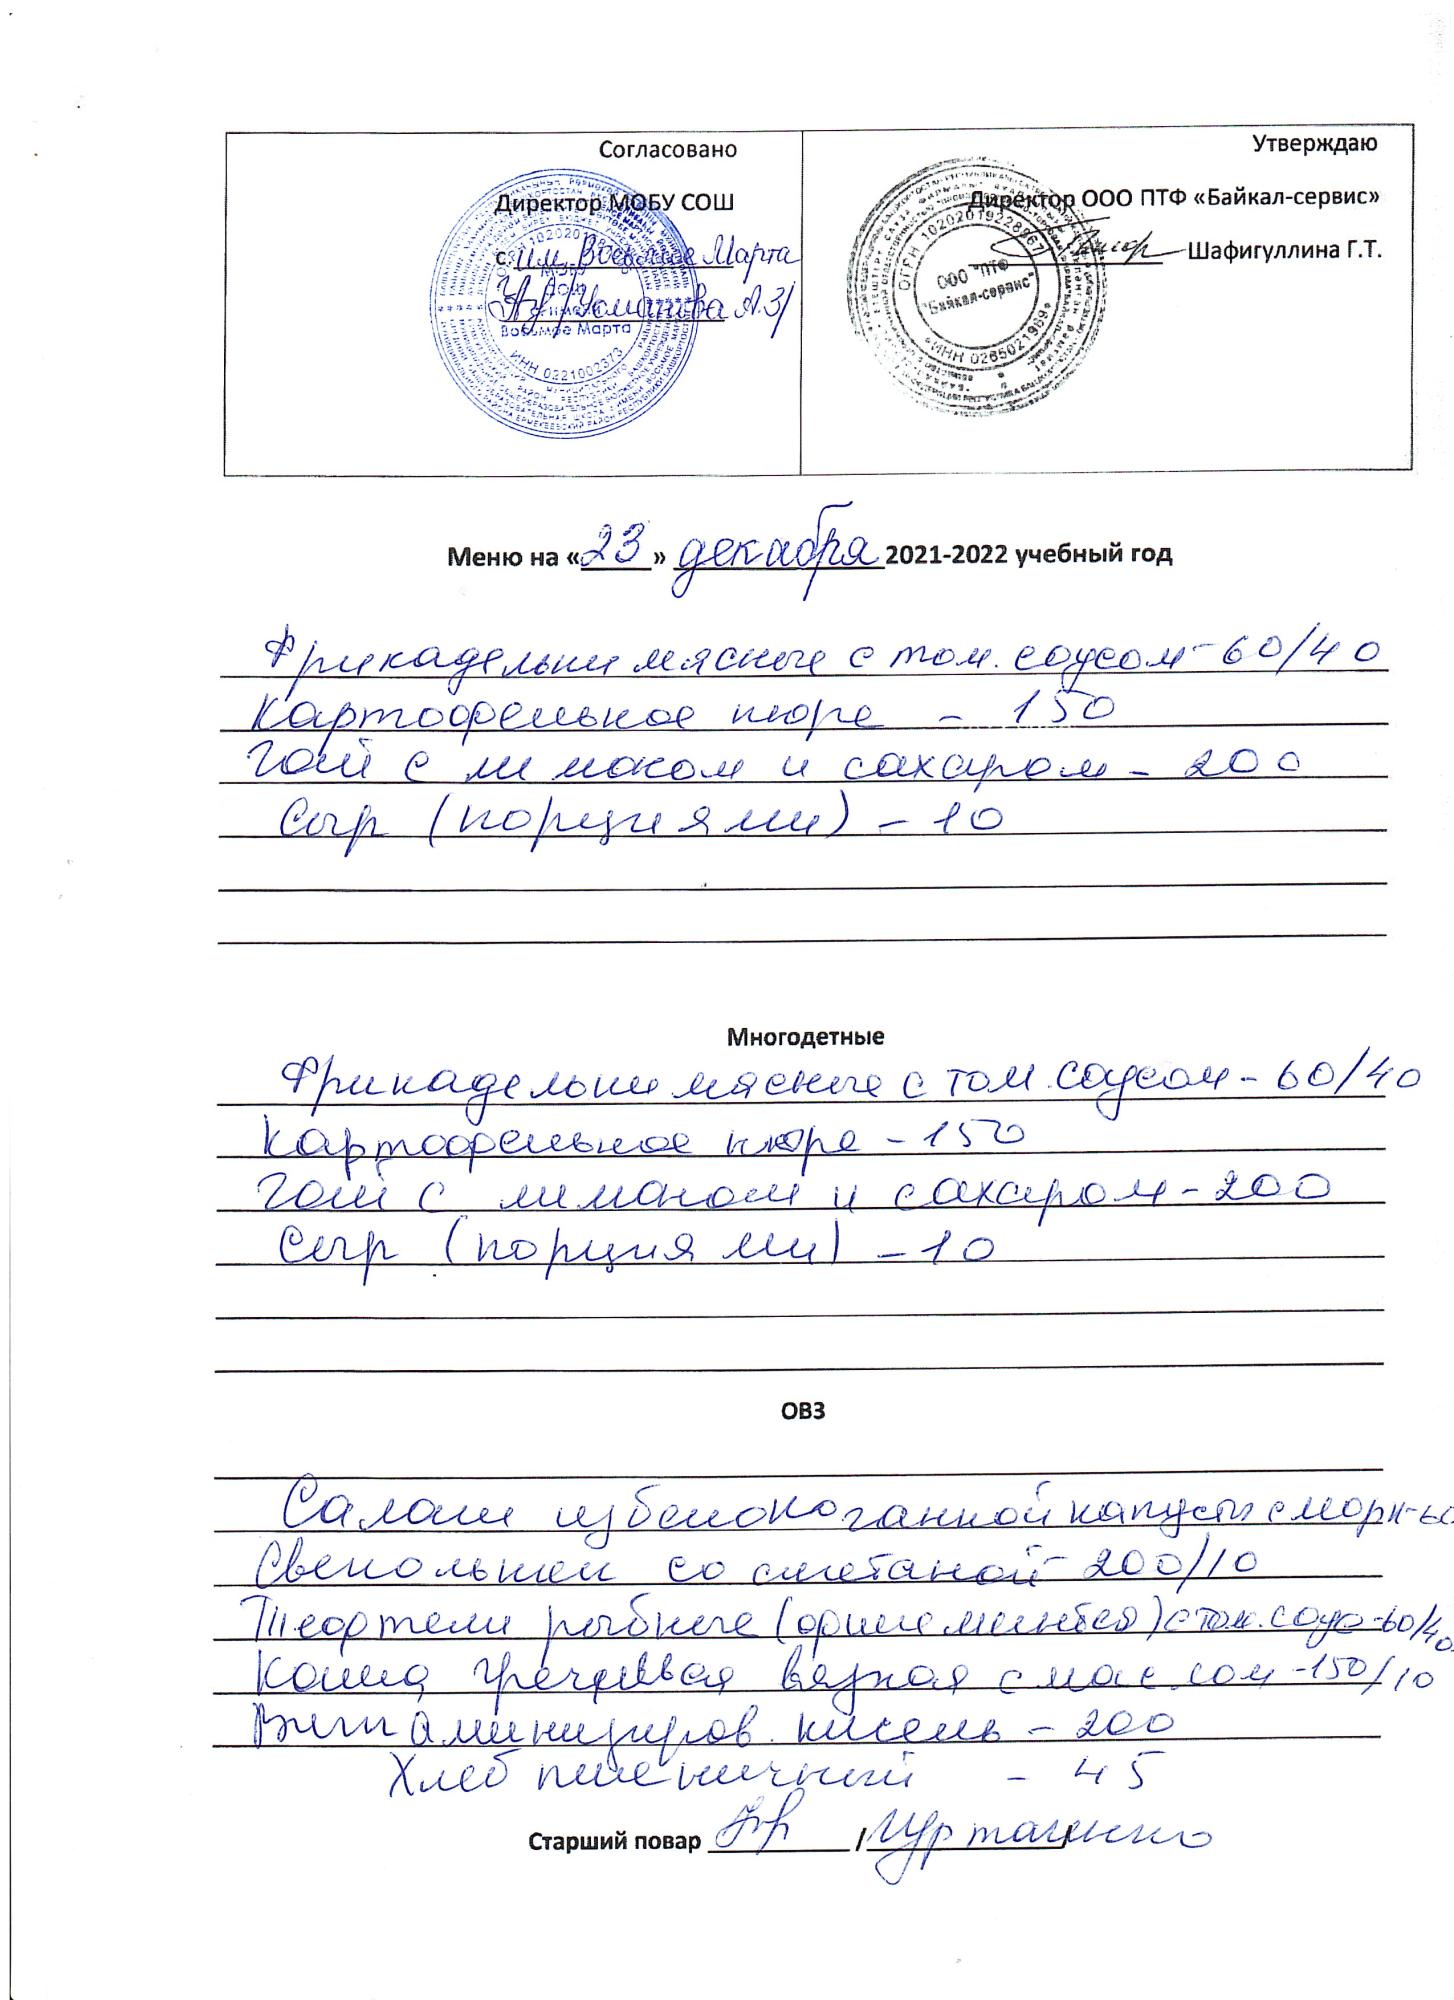 Согласовано
Директор МОБУ СОШ
с. им. Восьмое Марта
/Усманова А.З/
МОБУ
СОШ
имени
Восьмое Марта
ИНН 0221002373
Утверждаю
Директор ООО ПТФ «Байкал-сервис»
Шафигуллина Г.Т.
ОГРН 1020201922896
ООО "ПТФ
"Байкал-сервис"
ИНН 0265021969
Меню на «23» декабря 2021-2022 учебный год
Фрикадельки мясные с том. соусом - 60/40
Картофельное пюре - 150
Чай с лимоном и сахаром - 200
Сыр (порциями) - 10
Многодетные
Фрикадельки мясные с том. соусом - 60/40
Картофельное пюре - 150
Чай с лимоном и сахаром - 200
Сыр (порциями) - 10
ОВЗ
Салат из белокочанной капусты с морк - 60
Свекольник со сметаной - 200/10
Тефтели рыбные (филе минтая) с том. соус - 60/40
Каша гречневая вязкая с маслом - 150/10
Витаминизиров. кисель - 200
Хлеб пшеничный - 45
Старший повар / /